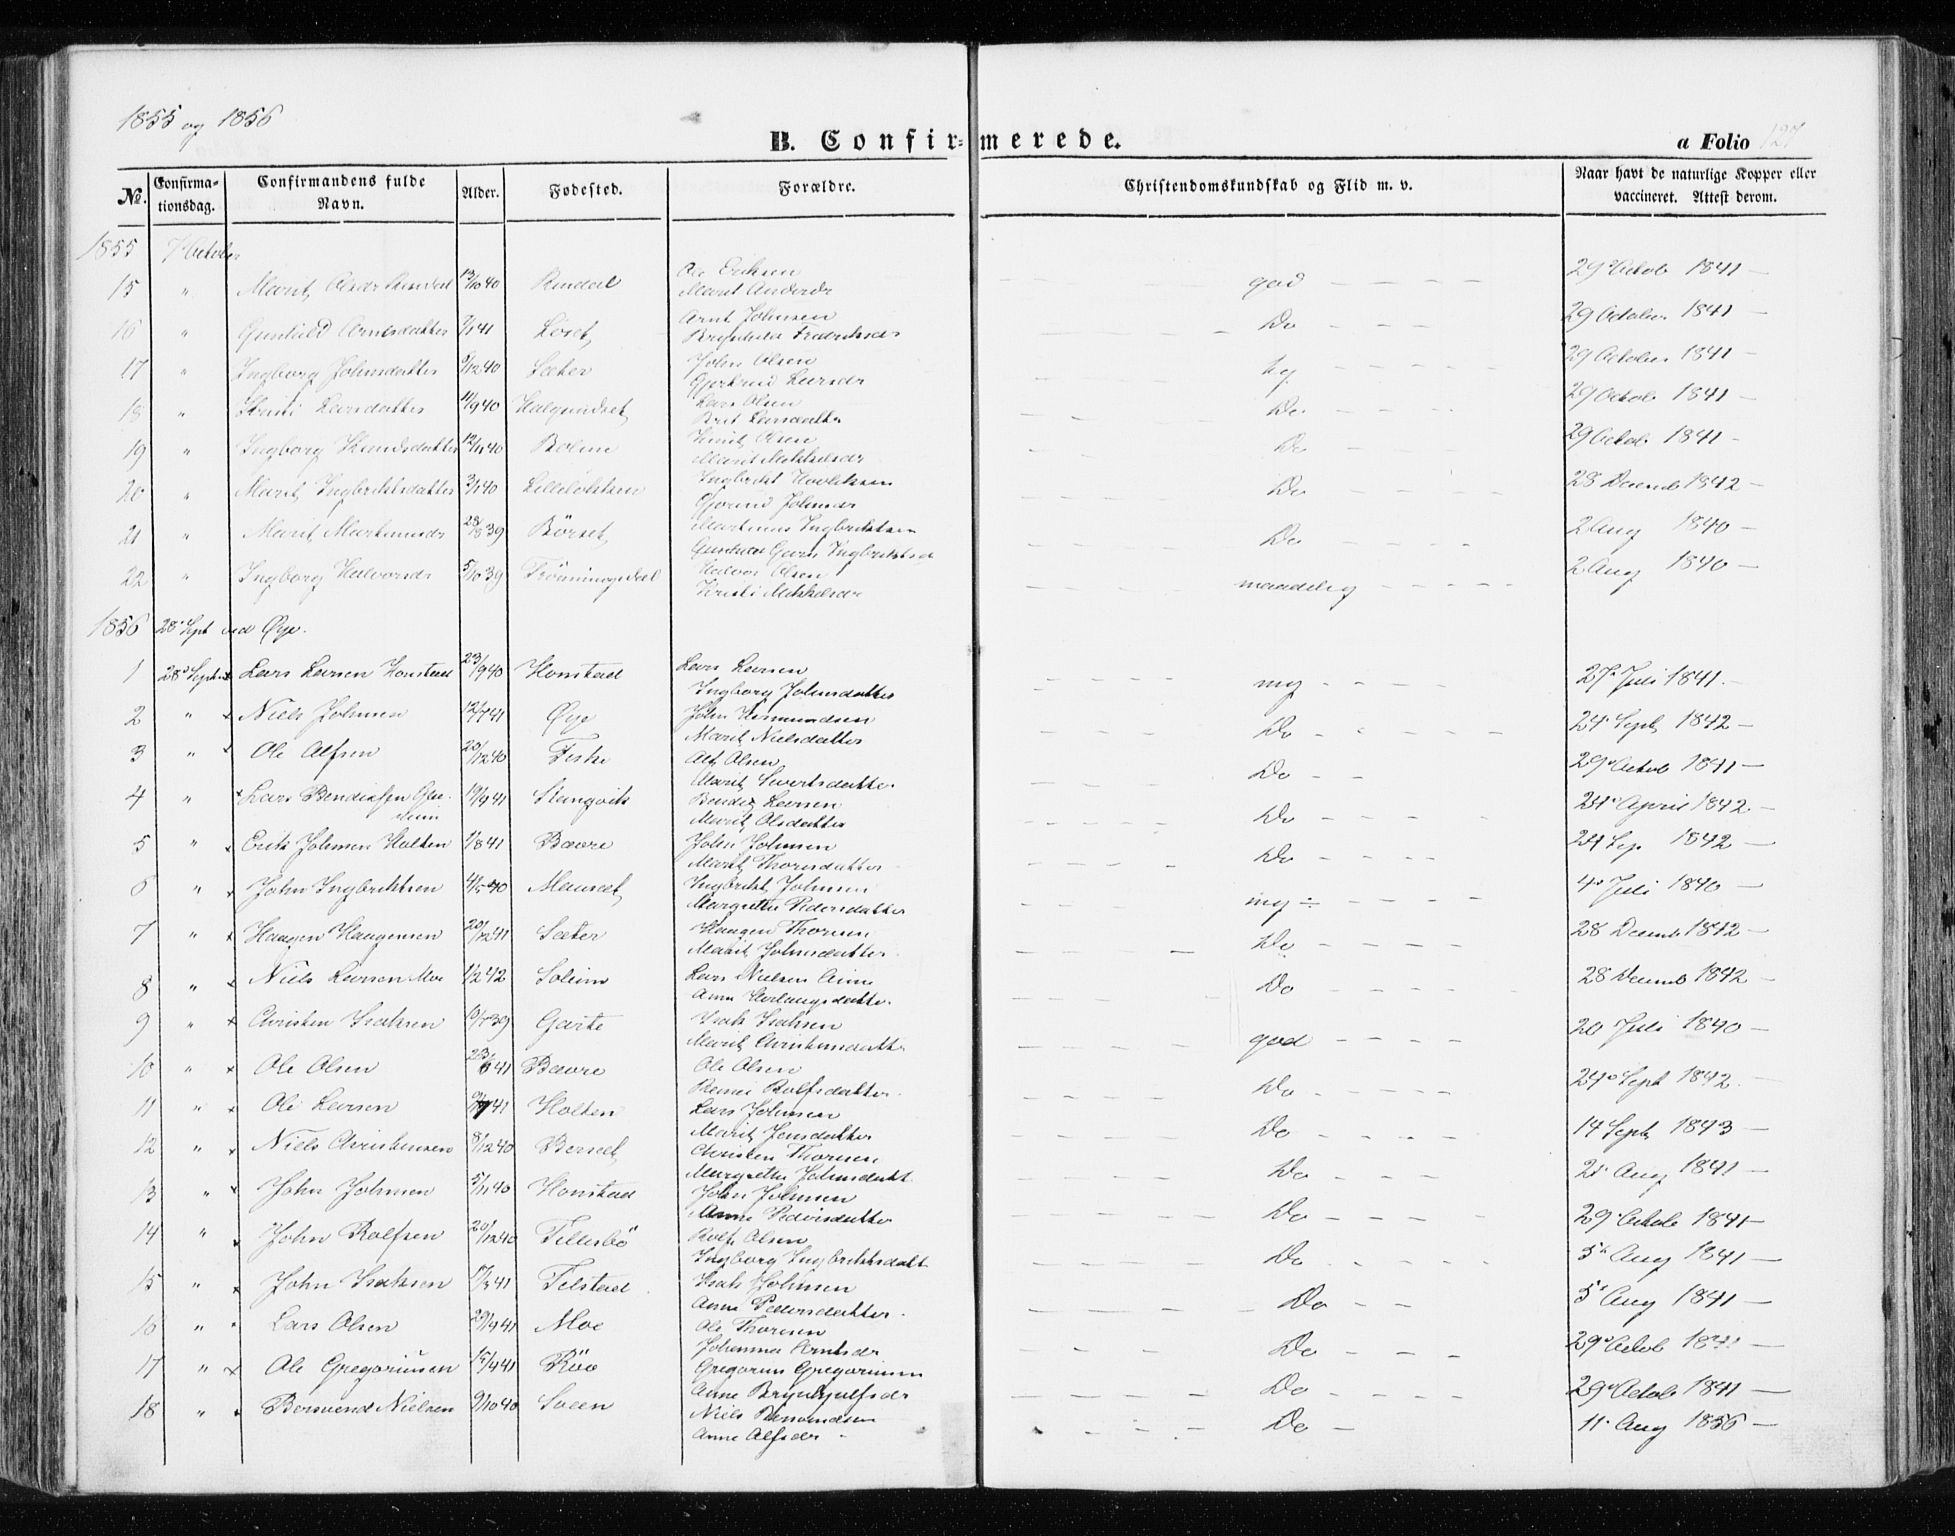 1855 og 1856
B. Confirmerede.
a Folio 127
No. Confirmationsdag. Confirmandens fulde Navn. Alder. Fødested. Forældre. Christendomskundskab og Flid m. v. Naar havt de naturlige Kopper eller vaccineret. Attest derom.
1855 7 October
15 " Marit Olsdr 13/10 40 Rindal Ole Eriksen god 29 Octob 1841
Marit Andersdr
16 " Gunhild Arnesdatter 7/1 41 Löset Arnt Johnsen Do 29 October 1841
Brynhild Fredriksdr
17 " Ingborg Johnsdatter 9/12 40 Sæter John Olsen 29 October 1841
Gjertrud Larsdr
18 " Larsdatter 11/9 40 Halgundset Lars Olsen Do 29 Octob 1841
Brit Larsdatter
19 " Ingborg Knudsdatter 12/11 40 Bolme Knut Olsen Do 29 Octob 1841
Marit Mikkelsdr
20 " Marit Ingbriktsdatter 3/1 40 Ingbrikt Do 28 Decemb 1842
Gjorud Johnsdr
21 " Marit Martinusdr 28/8 39 Börset Martinus Ingbriktsen Do 2 Aug 1840
Ingbriktsd
22 " Ingborg Halvorsdr 5/10 39 Trönningsdal Halvor Olsen maadelig 2 Aug 1840
Kristi Mikkelsdr
1856 28 Sept ved Øye.
1 28 Sept x Lars Larsen Honstad 23/9 40 Honstad Lars Larsen mg 27 Juli 1841
Ingborg Johnsdatter
2 " x Niels Johnsen 12/7 41 Øye John Do 24 Sept 1842
Marit Nielsdatter
3 " x Ole Alfsen 20/12 40 Feske Alf Olsen Do 29 Octob 1841
Marit Sivertsdatter
4 " x Lars Bendiksen 19/9 41 Stangvik Bendix Larsen Do 24 April 1842
Marit Olsdatter
5 " x Erik Johnsen Holten 1/8 41 Bævre John Johnsen Do 24 Sep 1842
Marit Thoresdatter
6 " x John Ingbriktsen 4/5 40 Mauset Ingbrikt Johnsen mg ÷ 4 Juli 1840
Margrethe Pedersdatter
7 " x Haagen Haagensen 20/12 41 Sæter Haagen Thoresen Do 28 Decemb 1842
Marit Johnsdatter
8 " x Niels Larsen Moe 1/2 42 Soleim Lars Nielsen Do 28 Decemb 1842
Anne
9 " x Christen Isaksen 10/7 39 Garte Isak Isaksen god 20 Juli 1840
Marit Christensdatt
10 " x Ole Olsen 23/6 41 Bævre Ole Olsen Do 24 Sept 1842
Rolfsdatter
11 " x Ole Larsen 41 Holten Lars Johnsen Do 14 Sept 1843
Marit Jensdatter
12 " x Niels Christensen 8/12 40 Berset Christen Thoresen Do 2 Aug 1841
Margrethe Johnsdatt
13 " x John Johnsen 5/11 40 Honstad John Johnsen Do 29 Octob 1841
Anne Pedersdatter
14 " x John Rolfsen 20/12 40 Tellesbö Rolf Olsen Do 5 Aug 1841
Ingborg Ingbriktsdatt
15 " x John Isaksen 17/3 41 Telstad Isak Johnsen Do 5 Aug 1841
Anne Pedersdatter
16 " Lars Olsen 29/9 41 Moe Ole Thoresen Do 29 Octob 1841
Johanna Arntsdr
17 " x Ole Gregoriusen 15/4 41 Röe Gregorius Gregoriusen Do 29 Octob 1841
Anne Brynhjulfsdr
18 " x Bersvend Nielsen 9/10 40 Sveen Niels Bersvendsen Do 11 Aug 1856
Anne Alfsdr